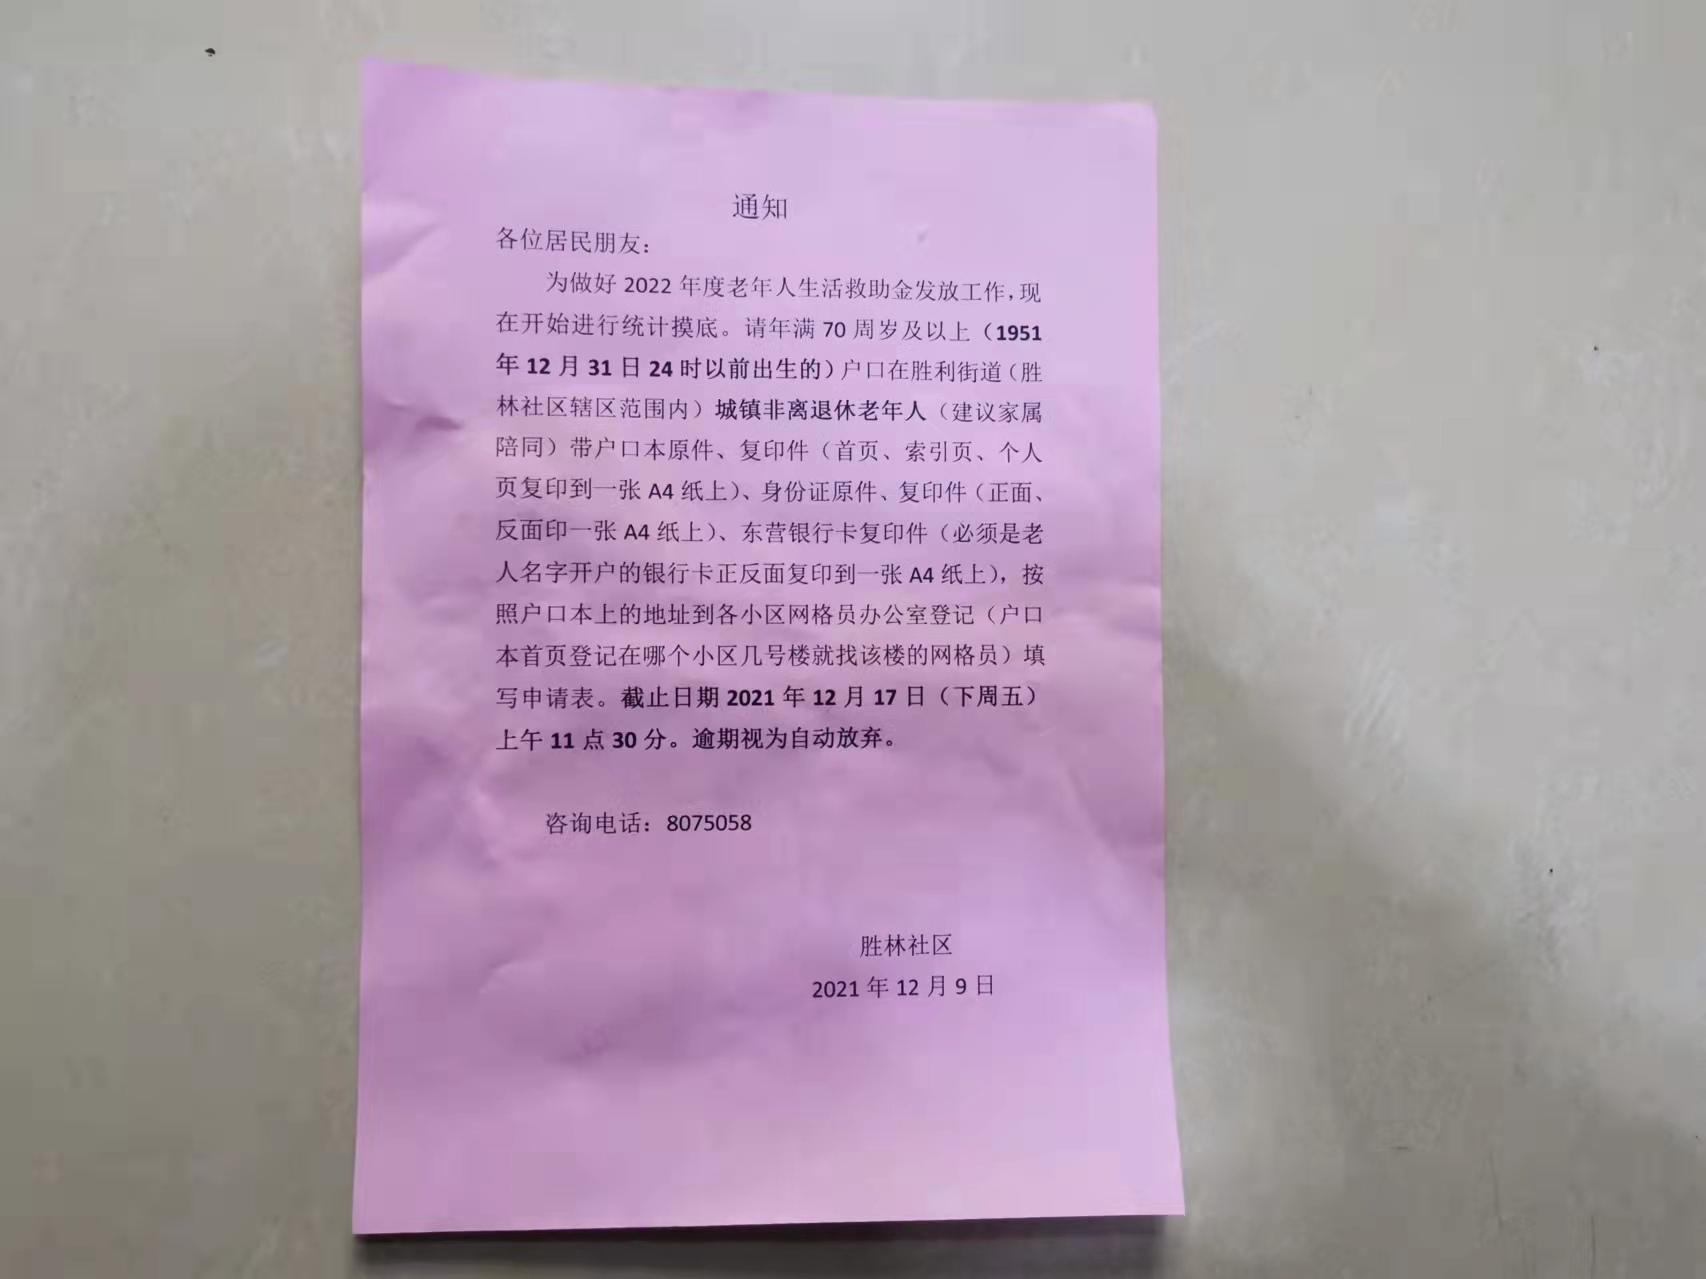 通知
各位居民朋友：
为做好 2022 年度老年人生活救助金发放工作，现
在开始进行统计摸底。请年满 70 周岁及以上（1951
年 12 月 31 日 24 时以前出生的）户口在胜利街道（胜
林社区辖区范围内）城镇非离退休老年人（建议家属
陪同）带户口本原件、复印件（首页、索引页、个人
页复印到一张 A4 纸上）、身份证原件、复印件（正面、
反面印一张 A4 纸上）、东营银行卡复印件（必须是老
人名字开户的银行卡正反面复印到一张 A4 纸上），按
照户口本上的地址到各小区网格员办公室登记（户口
本首页登记在哪个小区几号楼就找该楼的网格员）填
写申请表。截止日期 2021 年 12 月 17 日（下周五）
上午 11 点 30 分。逾期视为自动放弃。
咨询电话：8075058
胜林社区
2021 年 12 月 9 日